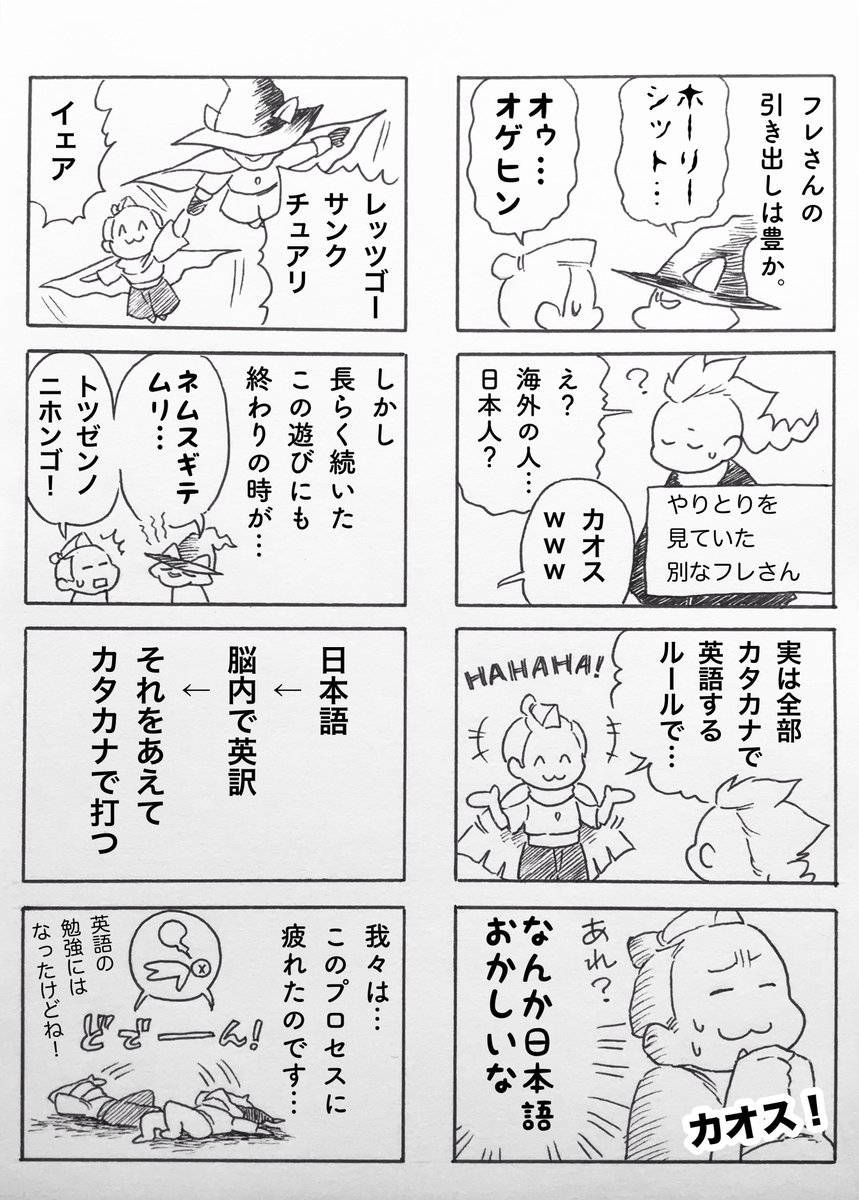 フレさんの
引き出しは豊か。
ホーリー
シット…
オゥ…
オゲヒン
？
え？
海外の人…
日本人？
カオス
ｗｗｗ
やりとりを
見ていた
別なフレさん
実は全部
カタカナで
英語する
ルールで…
HAHAHA!
あれ？
なんか日本語
おかしいな
カオス！
レッツゴー
サンク
チュアリ
イェア
しかし
長らく続いた
この遊びにも
終わりの時が…
ネムスギテ
ムリ…
トツゼンノ
ニホンゴ！
日本語
←
脳内で英訳
←
それをあえて
カタカナで打つ
我々は…
このプロセスに
疲れたのです…
どでーーん！
英語の
勉強には
なったけどね！